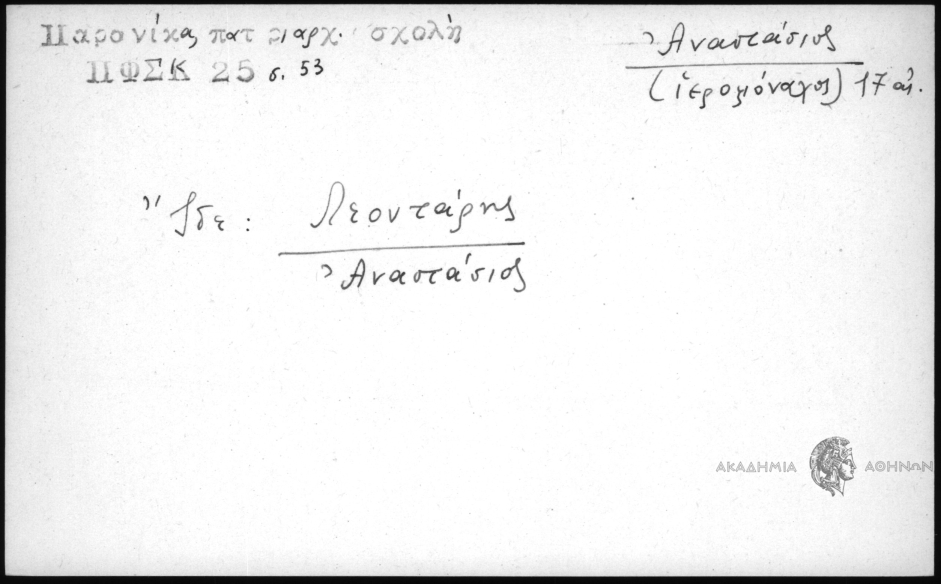 Παρανίκα, πατριαρχ. σχολὴ
ΠΦΣΚ 25 σ. 53
Ἀναστάσιος
(ἱερομόναχος) 17 αἰ.
Ἴδε: Λεοντάρης
Ἀναστάσιος
ΑΚΑΔΗΜΙΑ ΑΘΗΝΩΝ